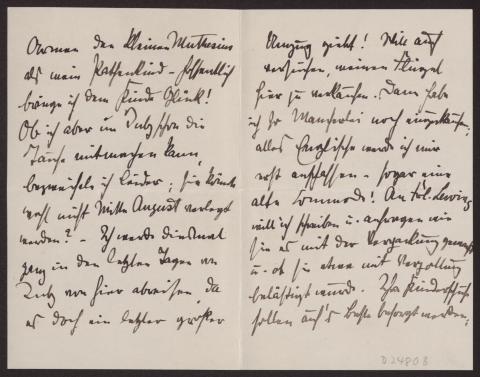 Armen den kleinen Muthesius
als mein Pathenkind – hoffentlich
bringe ich dem Kinde Glück!
Ob ich aber im July schon die
Taufe mitmachen kann,
bezweifele ich leider; sie könnte
wohl nicht Mitte August verlegt
werden? – Ich werde diesmal
ganz in den letzten Tagen von
July von hier abreisen, da
es doch ein letzter großer
Umzug giebt! Will auch
versuchen, meinen Flügel
hier zu verkaufen. Dann habe
ich so Mancherlei noch einzukaufen,
alles Englische werde ich nur
erst auffassen – sogar eine
alte Commode! An Frl.
will ich schreiben u. anfragen wie
sie es mit der Verpackung gemacht
u. ob sie etwa mit Verzollung
belästigt wurde. Ihre Kinderschuhe
sollen auf's Beste besorgt werden,
D 24808